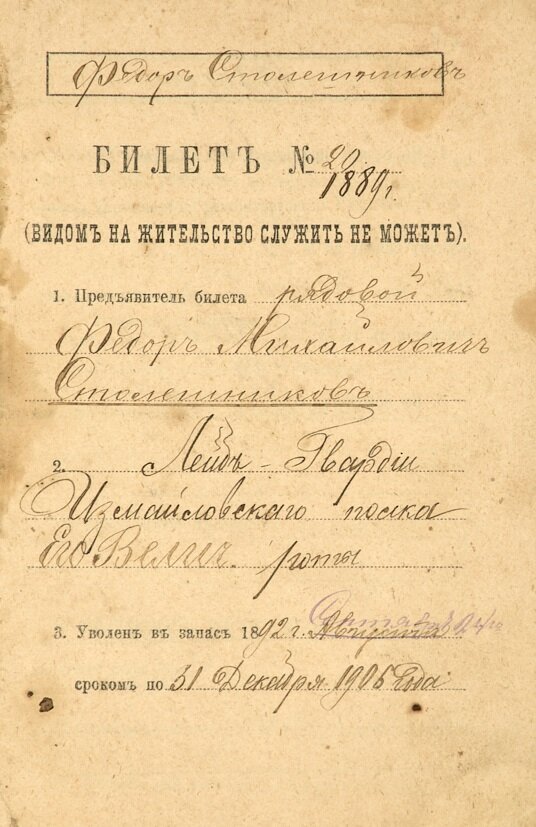 Ѳедоръ Столешниковъ
БИЛЕТЪ № 20
1889 г.
(ВИДОМЪ НА ЖИТЕЛЬСТВО СЛУЖИТЬ НЕ МОЖЕТЪ).
1. Предъявитель билета рядовой
Ѳедоръ Михайловичъ
Столешниковъ
2. Лейбъ-Гвардіи
Измайловскаго полка
Его Велич. роты
3. Уволенъ въ запасъ 1892 г. Августа
срокомъ по 31 Декабря 1906 года